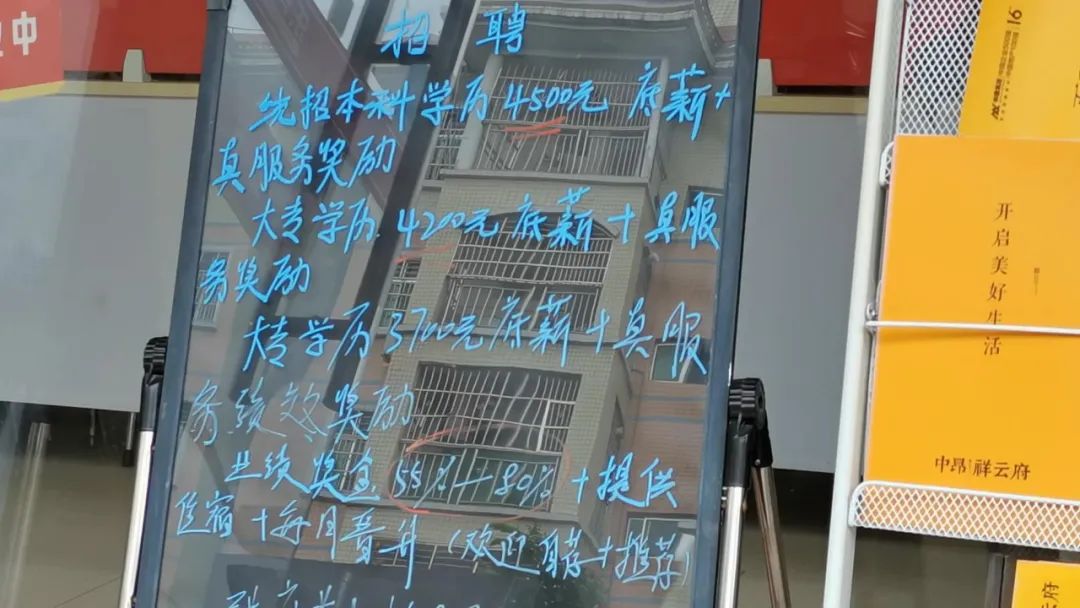 招聘
统招本科学历4500元底薪+
真服务奖励
大专学历.4200元底薪+真服
务奖励
大专学历3700元底薪+真服
务绩效奖励
业绩奖过55%—80%+提供
住宿+每月晋升(欢迎自荐+推荐)
开启美好生活
中昂 祥云府
云府
中